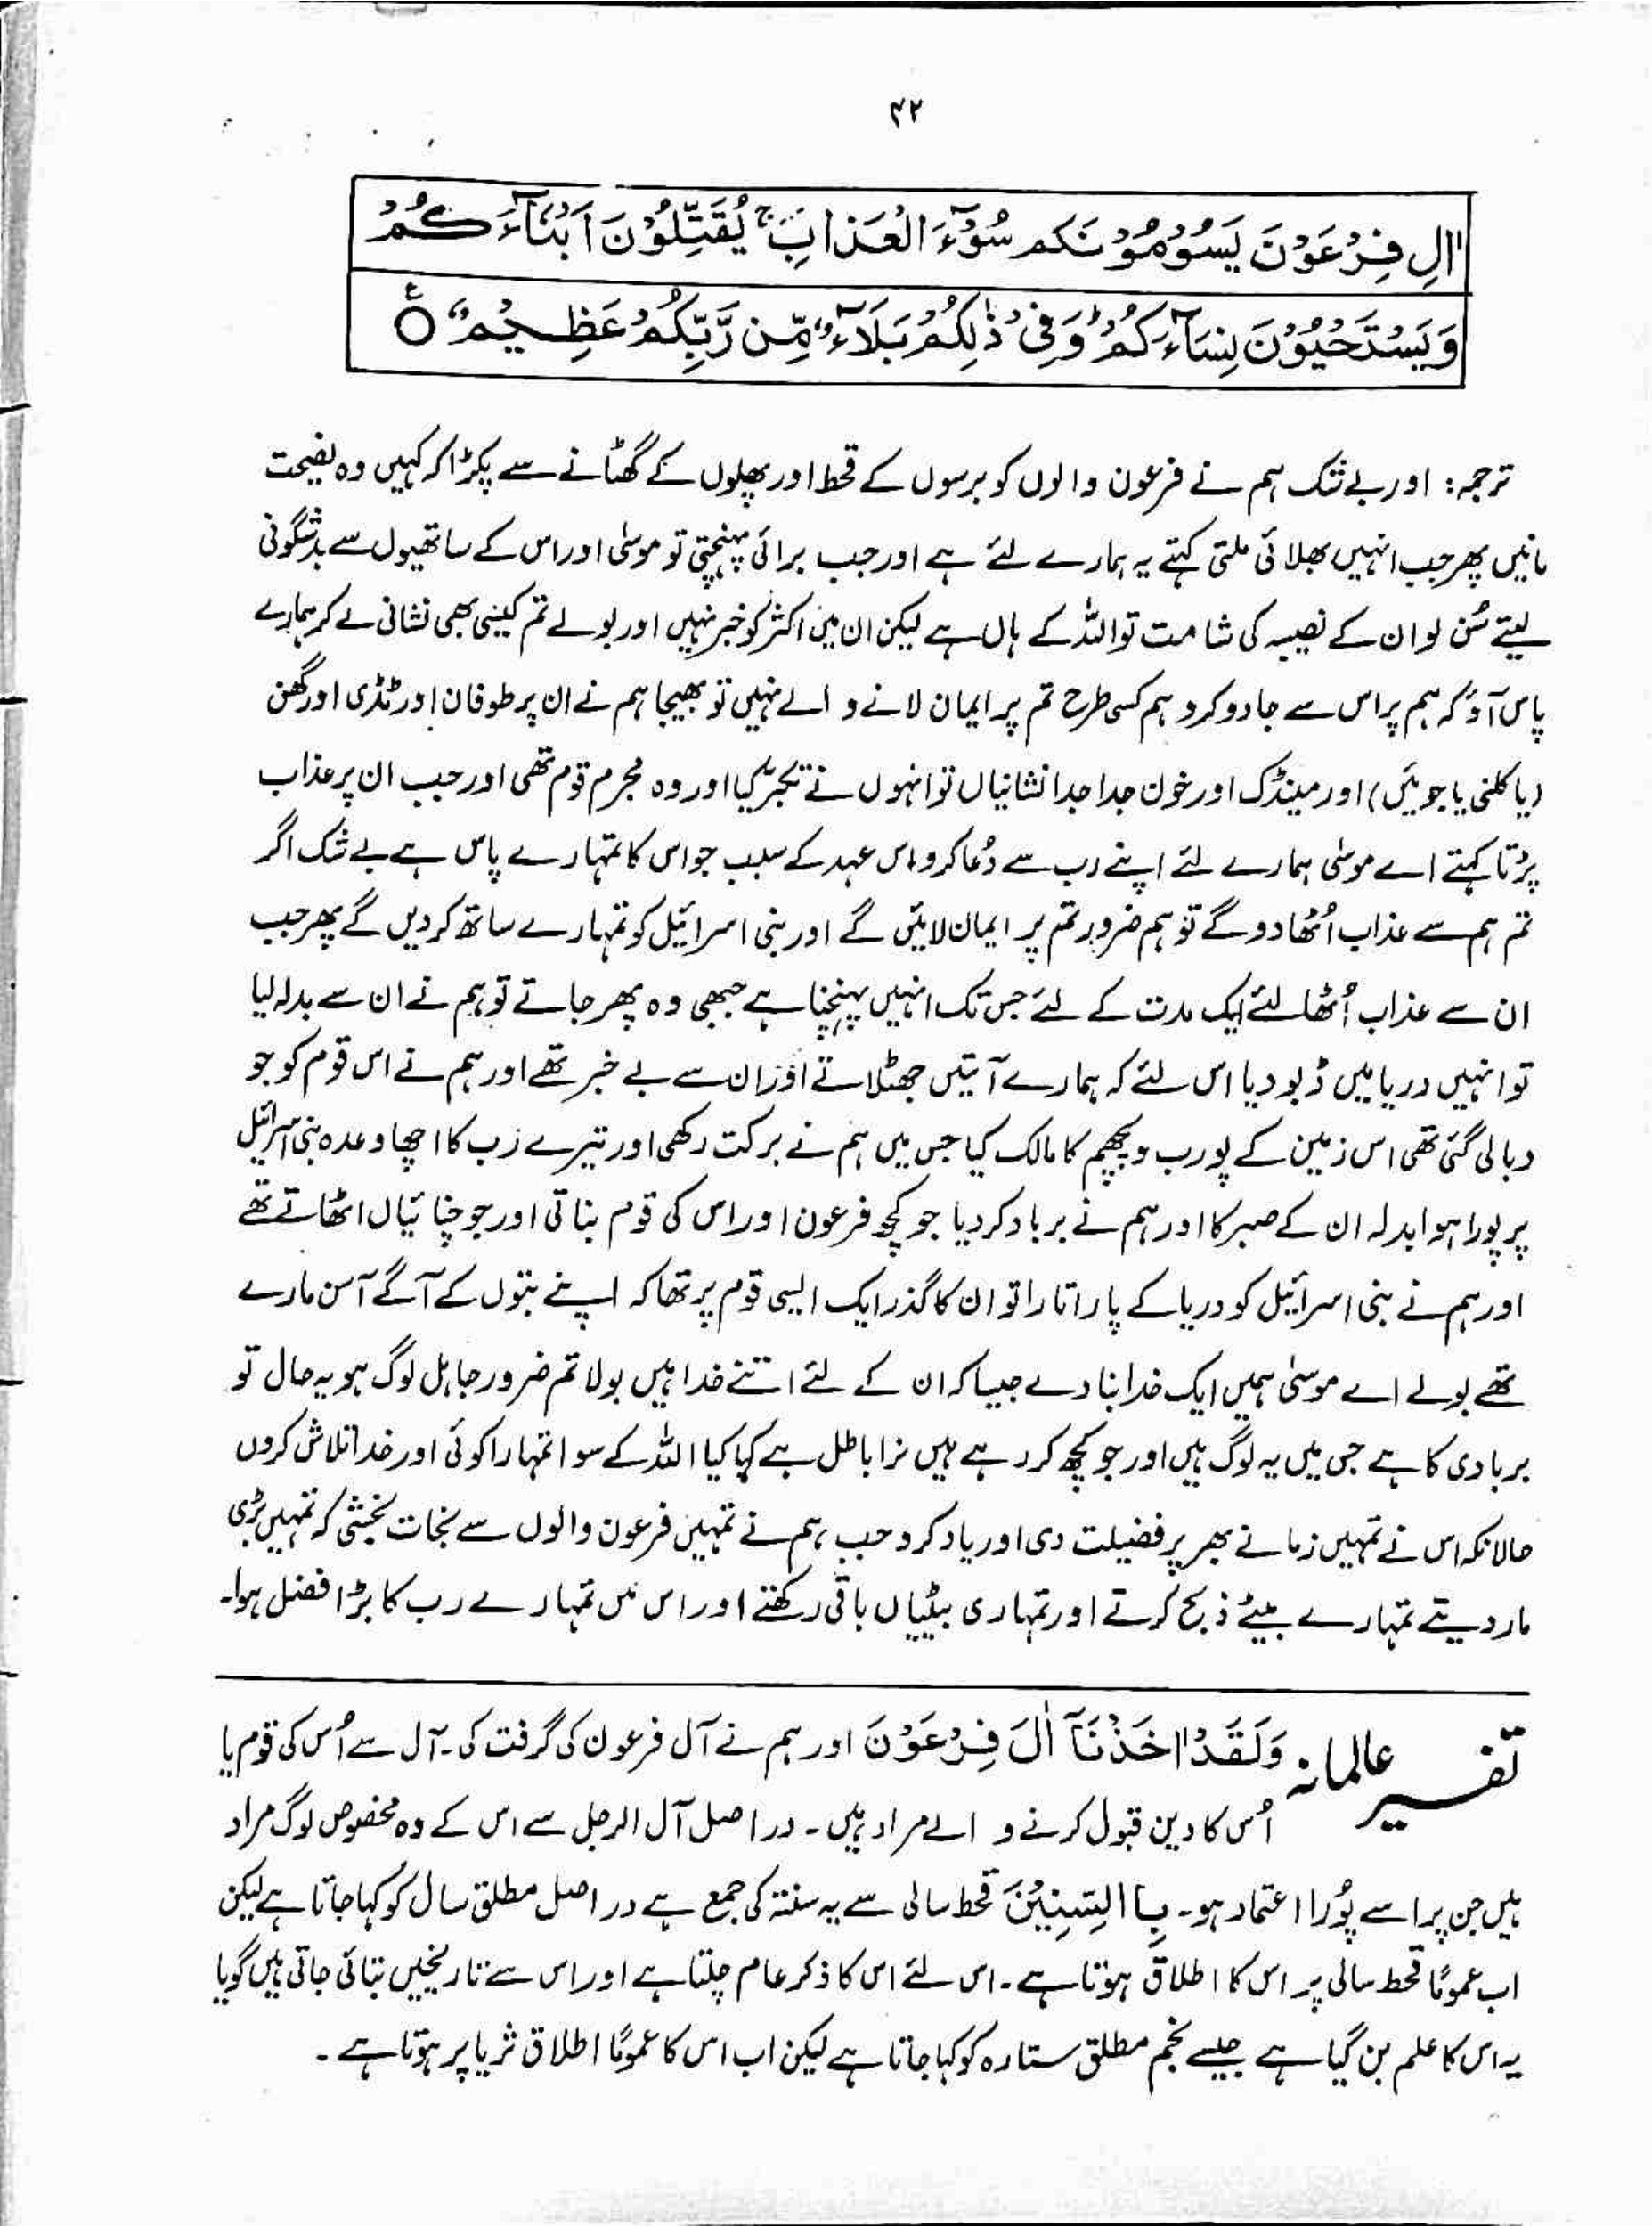 ۴۲
اٰلِ فِرْعَوْنَ يَسُوْمُوْنَكم سُوْٓءَ الْعَذَابِ ۚ يُقَتِّلُوْنَ اَبْنَآءَكُمْ
وَيَسْتَحْيُوْنَ نِسَآءَكُمْ ؕ وَفِىْ ذٰلِكُمْ بَلَآءٌ مِّن رَّبِّكُمْ عَظِيْمٌ ○ ع
ترجمہ: اور بے شک ہم نے فرعون والوں کو برسوں کے قحط اور پھلوں کے گھٹانے سے پکڑا کہ کہیں وہ نصیحت
مانیں پھر جب انہیں بھلائی ملتی کہتے یہ ہمارے لئے ہے اور جب برائی پہنچتی تو موسٰی اور اس کے ساتھیوں سے بدشگونی
لیتے سُن لو ان کے نصیبہ کی شامت تو اللہ کے ہاں ہے لیکن ان میں اکثر کو خبر نہیں اور بولے تم کیسی بھی نشانی لے کر ہمارے
پاس آؤ کہ ہم پر اس سے جادو کرو ہم کسی طرح تم پر ایمان لانے والے نہیں تو بھیجا ہم نے ان پر طوفان اور ٹڈی اور گھن
(یا کلنی یا جوئیں) اور مینڈک اور خون جدا جدا نشانیاں تو انہوں نے تکبر کیا اور وہ مجرم قوم تھی اور جب ان پر عذاب
پڑتا کہتے اے موسٰی ہمارے لئے اپنے رب سے دُعا کرو اس عہد کے سبب جو اس کا تمہارے پاس ہے بے شک اگر
تم ہم سے عذاب اُٹھا دو گے تو ہم ضرور تم پر ایمان لائیں گے اور بنی اسرائیل کو تمہارے ساتھ کردیں گے پھر جب
ان سے عذاب اُٹھا لئے ایک مدت کے لئے جس تک انہیں پہنچنا ہے جبھی وہ پھر جاتے تو ہم نے ان سے بدلہ لیا
تو انہیں دریا میں ڈبو دیا اس لئے کہ ہمارے آیتیں جھٹلاتے اور ان سے بے خبر تھے اور ہم نے اس قوم کو جو
دبا لی گئی تھی اس زمین کے پورب و پچھم کا مالک کیا جس میں ہم نے برکت رکھی اور تیرے رب کا اچھا وعدہ بنی اسرائیل
پر پورا ہوا بدلہ ان کے صبر کا اور ہم نے برباد کردیا جو کچھ فرعون اور اس کی قوم بناتی اور جو چنائیاں اٹھاتے تھے
اور ہم نے بنی اسرائیل کو دریا کے پار اتارا تو ان کا گذر ایک ایسی قوم پر تھا کہ اپنے بتوں کے آگے آسن مارے
تھے بولے اے موسٰی ہمیں ایک خدا بنا دے جیسا کہ ان کے لئے اتنے خدا ہیں بولا تم ضرور جاہل لوگ ہو یہ حال تو
بربادی کا ہے جس میں یہ لوگ ہیں اور جو کچھ کر رہے ہیں نرا باطل ہے کہا کیا اللہ کے سوا تمہارا کوئی اور خدا تلاش کروں
حالانکہ اس نے تمہیں زمانے بھر پر فضیلت دی اور یاد کرو جب ہم نے تمہیں فرعون والوں سے نجات بخشی کہ تمہیں بڑی
مار دیتے تمہارے بیٹے ذبح کرتے اور تمہاری بیٹیاں باقی رکھتے اور اس میں تمہارے رب کا بڑا فضل ہوا۔
تفسیر عالمانہ وَلَقَدْ اَخَذْنَآ اٰلَ فِرْعَوْنَ اور ہم نے آل فرعون کی گرفت کی۔ آل سے اُس کی قوم یا
اُس کا دین قبول کرنے والے مراد ہیں۔ دراصل آل الرجل سے اس کے وہ مخصوص لوگ مراد
ہیں جن پر اسے پُورا اعتماد ہو۔ بِاالسِّنِيْنَ قحط سالی سے یہ سنتہ کی جمع ہے دراصل مطلق سال کو کہا جاتا ہے لیکن
اب عموماً قحط سالی پر اس کا اطلاق ہوتا ہے۔ اس لئے اس کا ذکر عام چلتا ہے اور اس سے تاریخیں بتائی جاتی ہیں گویا
یہ اس کا علم بن گیا ہے جیسے نجم مطلق ستارہ کو کہا جاتا ہے لیکن اب اس کا عموماً اطلاق ثریا پر ہوتا ہے۔